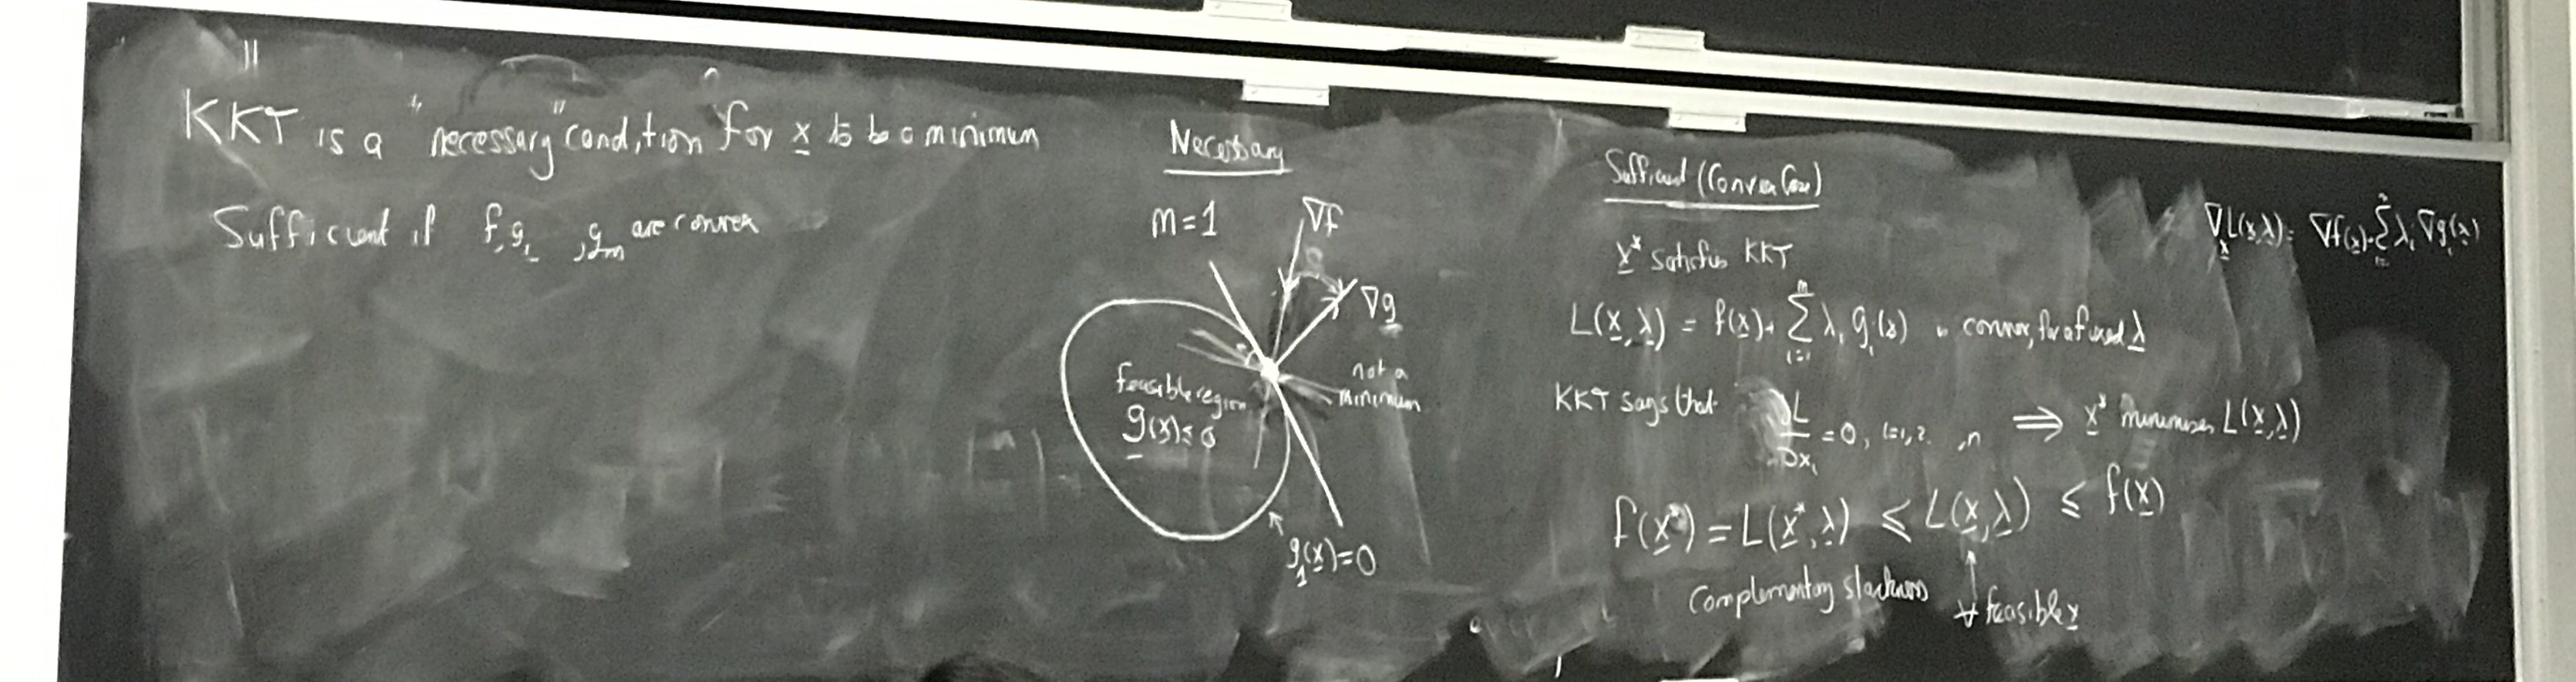 KKT is a "necessary" condition for x to be a minimum
Sufficient if f, g₁, , gₘ are convex
Necessary
m = 1
∇f
∇g
not a
minimum
feasible region
g(x) ≤ 0
g₁(x) = 0
Sufficient (Convex Case)
x* satisfies KKT
L(x, λ) = f(x) + ∑ᵢ₌₁ᵐ λᵢ gᵢ(x) is convex, for a fixed λ
KKT says that ∂L/∂xᵢ = 0, i=1,2, , n ⇒ x* minimises L(x, λ)
f(x*) = L(x*, λ) ≤ L(x, λ) ≤ f(x)
Complementary slackness
↑ ∀ feasible x
∇ₓL(x, λ) = ∇f(x) + ∑ λᵢ ∇gᵢ(x)